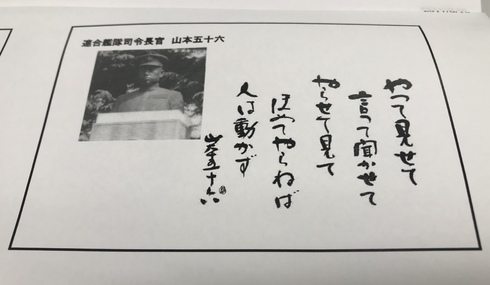 連合艦隊司令長官 山本五十六
やつて見せて
言つて聞かせて
やらせて見て
ほめてやらねば
人は動かず
山本五十六